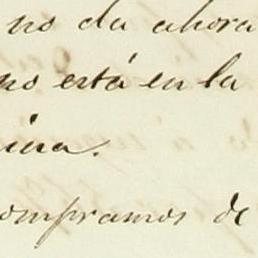 no da ahora
no está en la
ina.
ompramos de